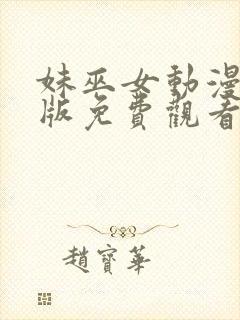 妹巫女動漫
版免費觀看
趙寶華